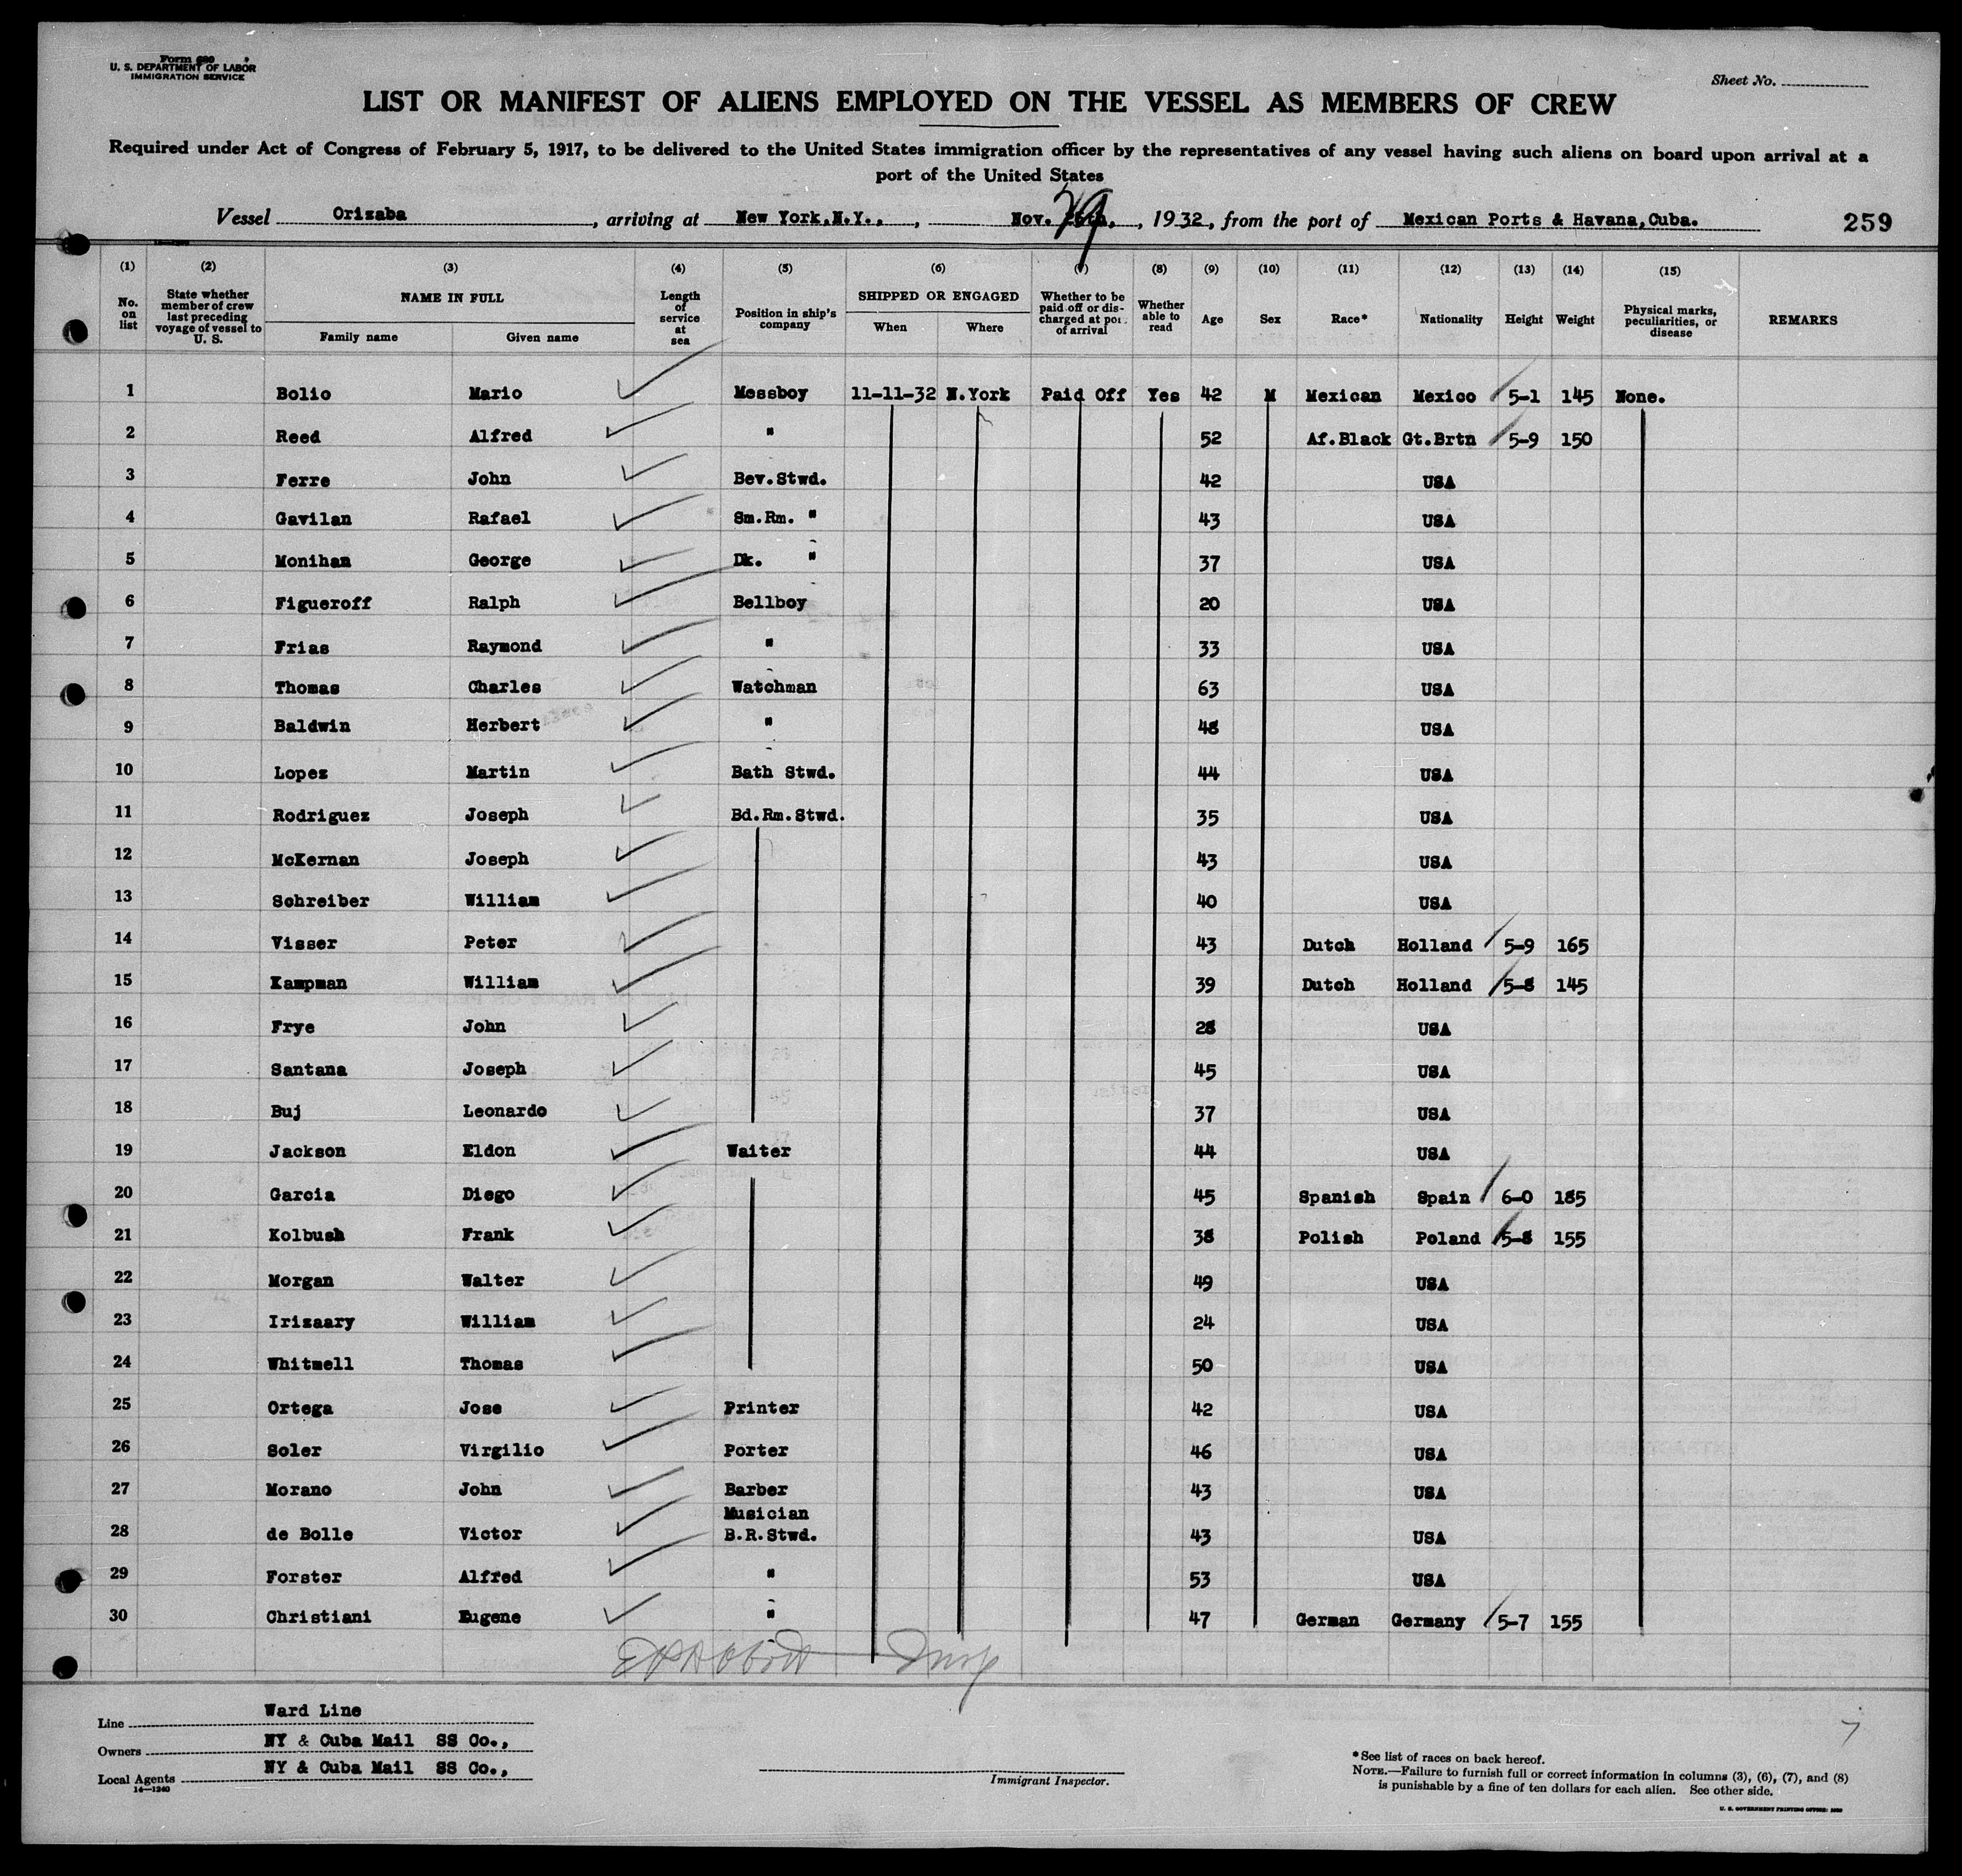 Form 680
U. S. DEPARTMENT OF LABOR
IMMIGRATION SERVICE
Sheet No.
LIST OR MANIFEST OF ALIENS EMPLOYED ON THE VESSEL AS MEMBERS OF CREW
Required under Act of Congress of February 5, 1917, to be delivered to the United States immigration officer by the representatives of any vessel having such aliens on board upon arrival at a
port of the United States
Vessel Orizaba, arriving at New York,N.Y., , Nov. 29 , 1932, from the port of Mexican Ports & Havana,Cuba. 259
(1) (2) (3) (4) (5) (6) (7) (8) (9) (10) (11) (12) (13) (14) (15)
No. on list State whether member of crew last preceding voyage of vessel to U. S. NAME IN FULL Family name Given name Length of service at sea Position in ship's company SHIPPED OR ENGAGED When Where Whether to be paid off or discharged at port of arrival Whether able to read Age Sex Race* Nationality Height Weight Physical marks, peculiarities, or disease REMARKS
1 Bolio Mario Messboy 11-11-32 N.York Paid Off Yes 42 M Mexican Mexico 5-1 145 None.
2 Reed Alfred " 52 Af.Black Gt.Brtn 5-9 150
3 Ferre John Bev.Stwd. 42 USA
4 Gavilan Rafael Sm.Rm. " 43 USA
5 Monihan George Dk. " 37 USA
6 Figueroff Ralph Bellboy 20 USA
7 Frias Raymond " 33 USA
8 Thomas Charles Watchman 63 USA
9 Baldwin Herbert " 48 USA
10 Lopez Martin Bath Stwd. 44 USA
11 Rodriguez Joseph Bd.Rm.Stwd. 35 USA
12 McKernan Joseph 43 USA
13 Schreiber William 40 USA
14 Visser Peter 43 Dutch Holland 5-9 165
15 Kampman William 39 Dutch Holland 5-8 145
16 Frye John 28 USA
17 Santana Joseph 45 USA
18 Buj Leonardo 37 USA
19 Jackson Eldon Waiter 44 USA
20 Garcia Diego 45 Spanish Spain 6-0 185
21 Kolbush Frank 38 Polish Poland 5-8 155
22 Morgan Walter 49 USA
23 Irizaary William 24 USA
24 Whitmell Thomas 50 USA
25 Ortega Jose Printer 42 USA
26 Soler Virgilio Porter 46 USA
27 Morano John Barber 43 USA
Musician
28 de Bolle Victor B.R.Stwd. 43 USA
29 Forster Alfred " 53 USA
30 Christiani Eugene " 47 German Germany 5-7 155
Line Ward Line
Owners NY & Cuba Mail SS Co.,
Local Agents NY & Cuba Mail SS Co.,
14—1240
Immigrant Inspector.
*See list of races on back hereof.
NOTE.—Failure to furnish full or correct information in columns (3), (6), (7), and (8)
is punishable by a fine of ten dollars for each alien. See other side.